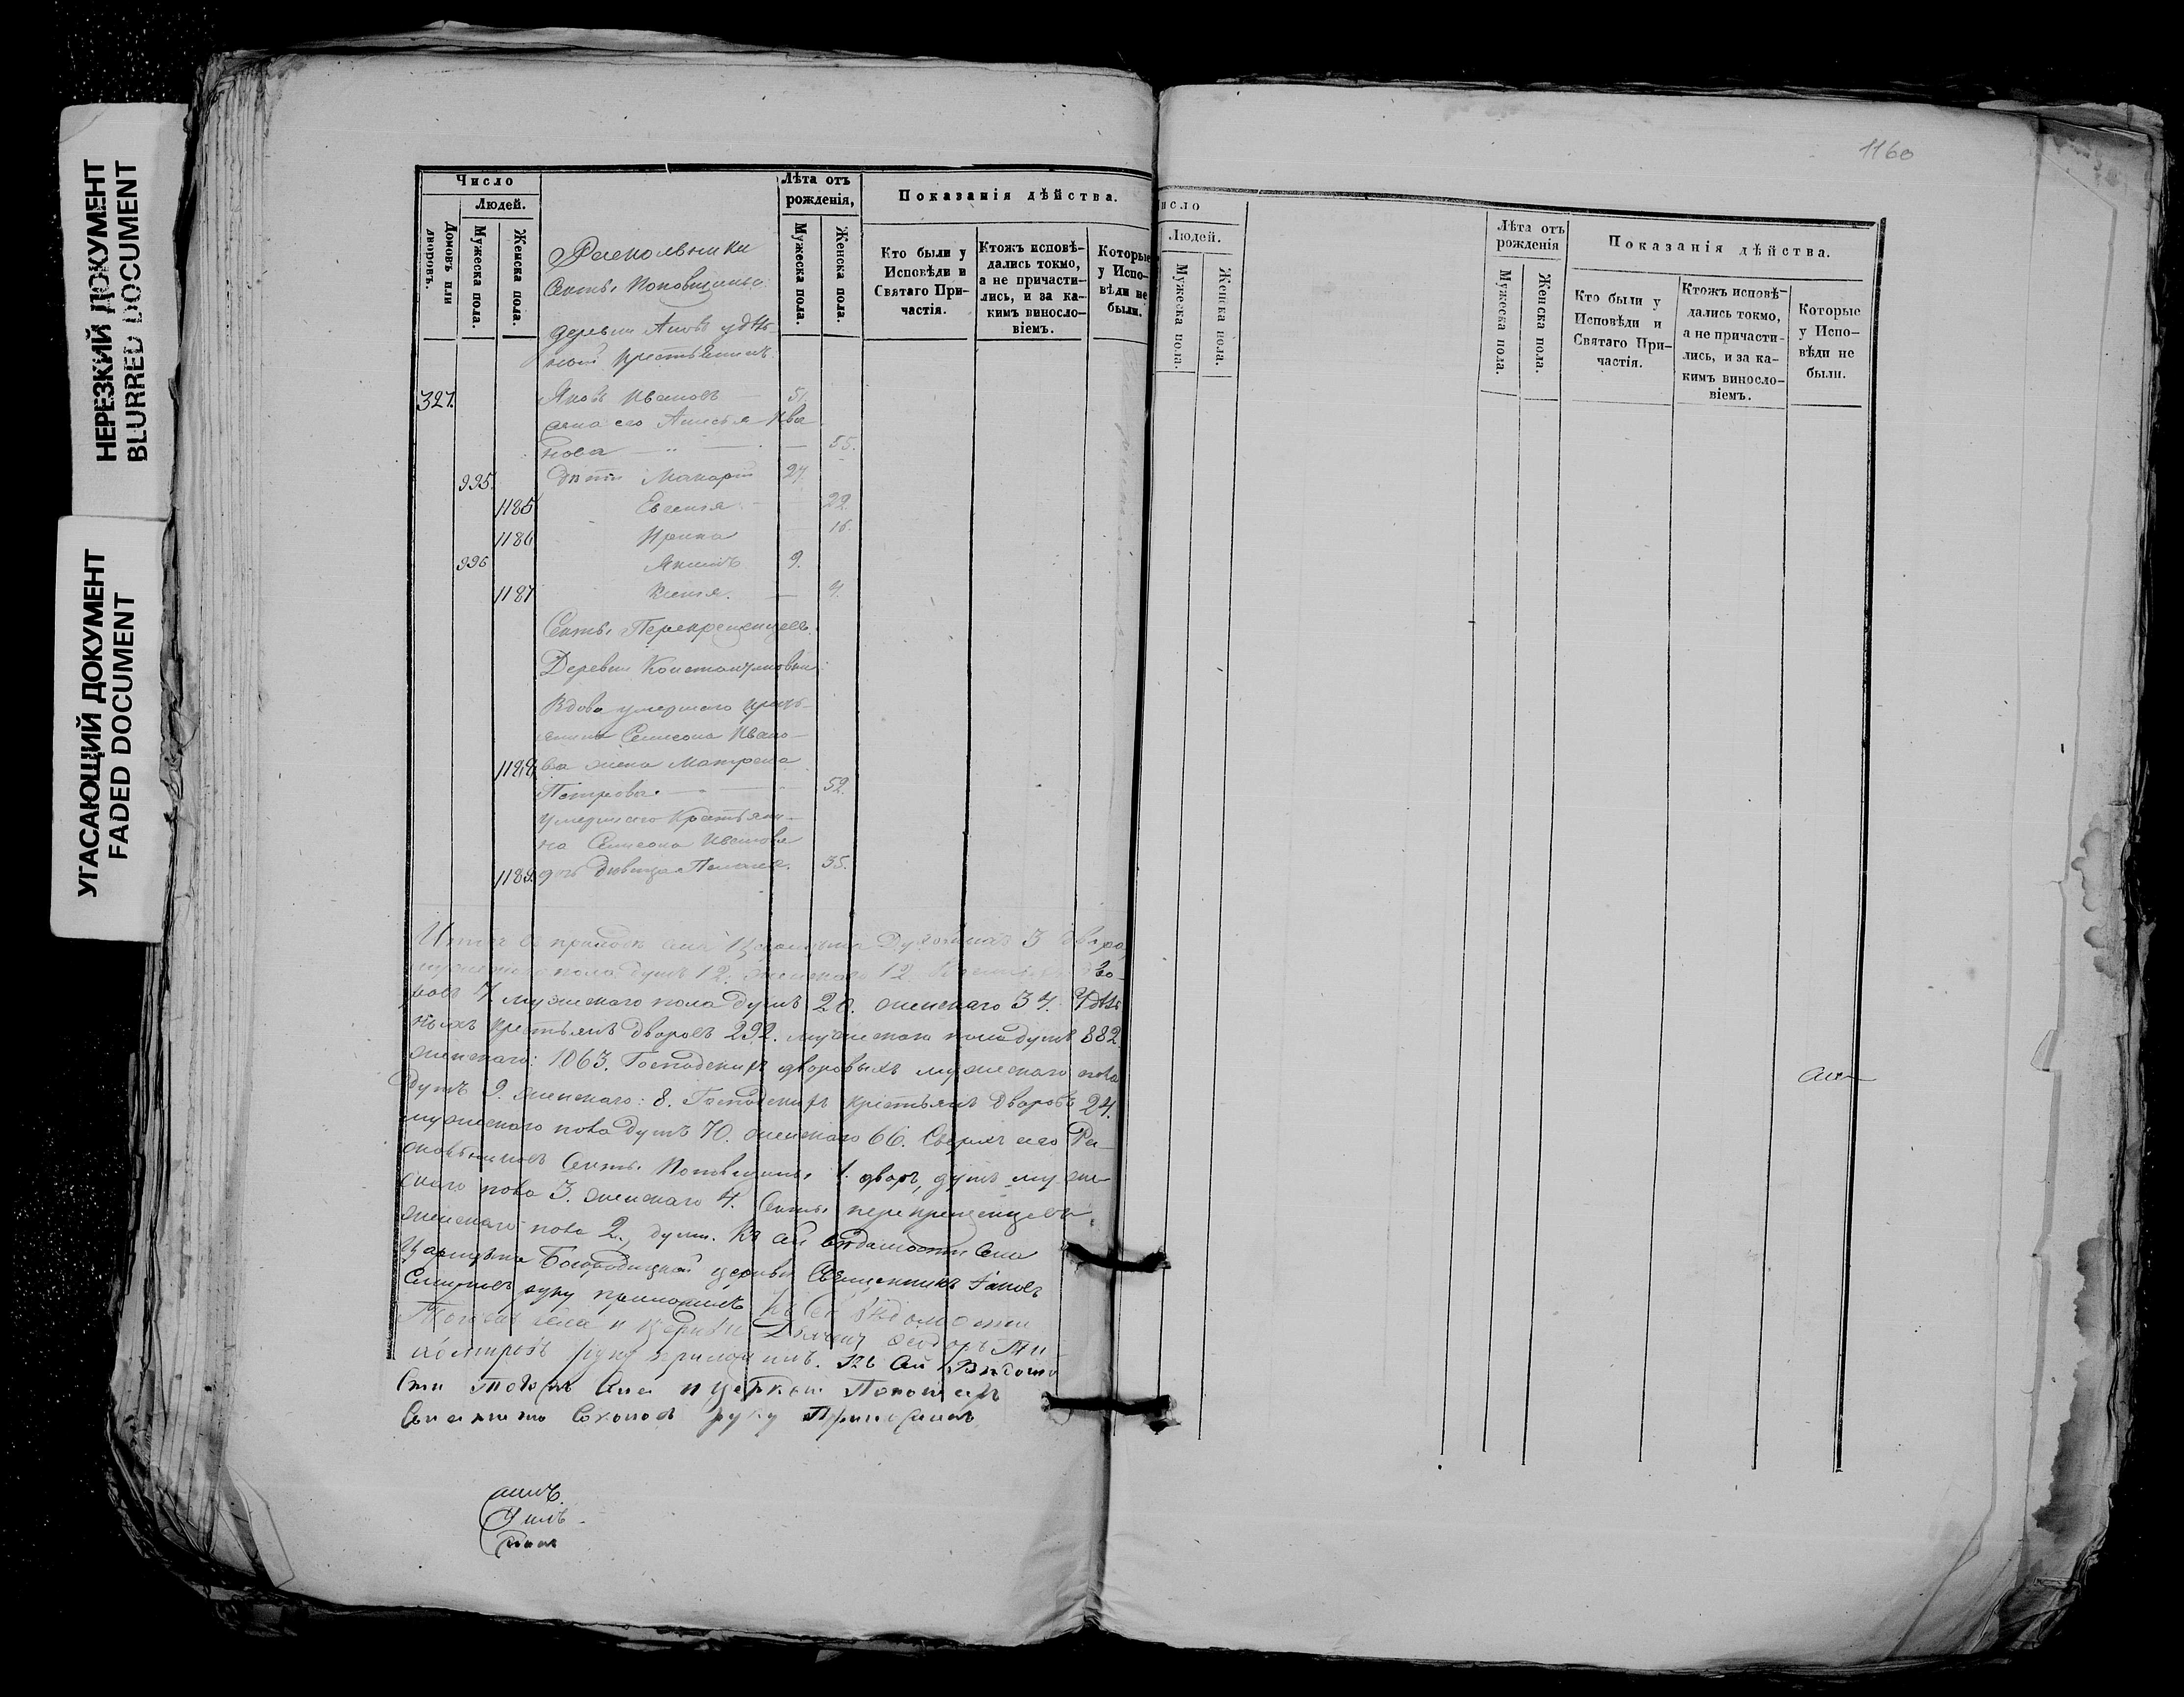 НЕРЕЗКИЙ ДОКУМЕНТ
BLURRED DOCUMENT
УГАСАЮЩИЙ ДОКУМЕНТ
FADED DOCUMENT
1160
Число
Людей.
Домовъ или дворовъ.
Мужеска пола.
Женска пола.
Лѣта отъ рожденія,
Мужеска пола.
Женска пола.
Показанія дѣйства.
Кто были у Исповѣди и Святаго Причастія.
Ктожъ исповѣдались токмо, а не причастились, и за какимъ винословіемъ.
Которые у Исповѣди не были.
Раскольники
Секты Поповщины
деревни удѣль-
ной крестьянинъ
327. Яковъ Ивановъ — 51.
жена его Анисья Ива
нова — 55.
995. дѣти Макарій 27.
1185 Евгенія 22.
1186 Ирина 16.
996 Якимъ 9.
1187 Ксенія. — 9.
Секты Перекрещенцевъ.
Деревни Константиновки
Вдова умершаго кресть-
янина Семиона Ивано-
1188 ва жена Матрена
Петрова. — 52.
умершаго Крестьяни-
на Семиона Иванова
1189. дочь Дѣвица Пелагея. 35.
Итого въ приходѣ села Царицына Духовныхъ 3 двора,
мужескаго пола душъ 12. женскаго 12. дво-
ровъ 7. мужескаго пола душъ 28. женскаго 34. Удѣль
ныхъ крестьянъ дворовъ 292. мужескаго пола душъ 882.
женскаго: 1063. Господскихъ дворовыхъ мужескаго пола
душъ 9. женскаго: 8. Господскихъ крестьянъ дворовъ 24.
мужескаго пола душъ 70. женскаго 66. Сверхъ сего Рас
кольниковъ Секты Поповщины 1. дворъ, душъ муже
скаго пола 3. женскаго 4. Секты перекрещенцевъ
женскаго пола 2., душъ. Къ сей вѣдомости Села
Царицына Богородицкой церкви Священникъ Іаковъ
руку приложилъ Къ сей вѣдомости
Того же села и церкви Дьячекъ Федоръ Ти
руку приложилъ. Къ сей Вѣдомо
сти тогожъ села и церкви Пономарь
руку Приложилъ
Число
Людей.
Мужеска пола.
Женска пола.
Лѣта отъ рожденія
Мужеска пола.
Женска пола.
Показанія дѣйства.
Кто были у Исповѣди и Святаго Причастія.
Ктожъ исповѣдались токмо, а не причастились, и за какимъ винословіемъ.
Которые у Исповѣди не были.